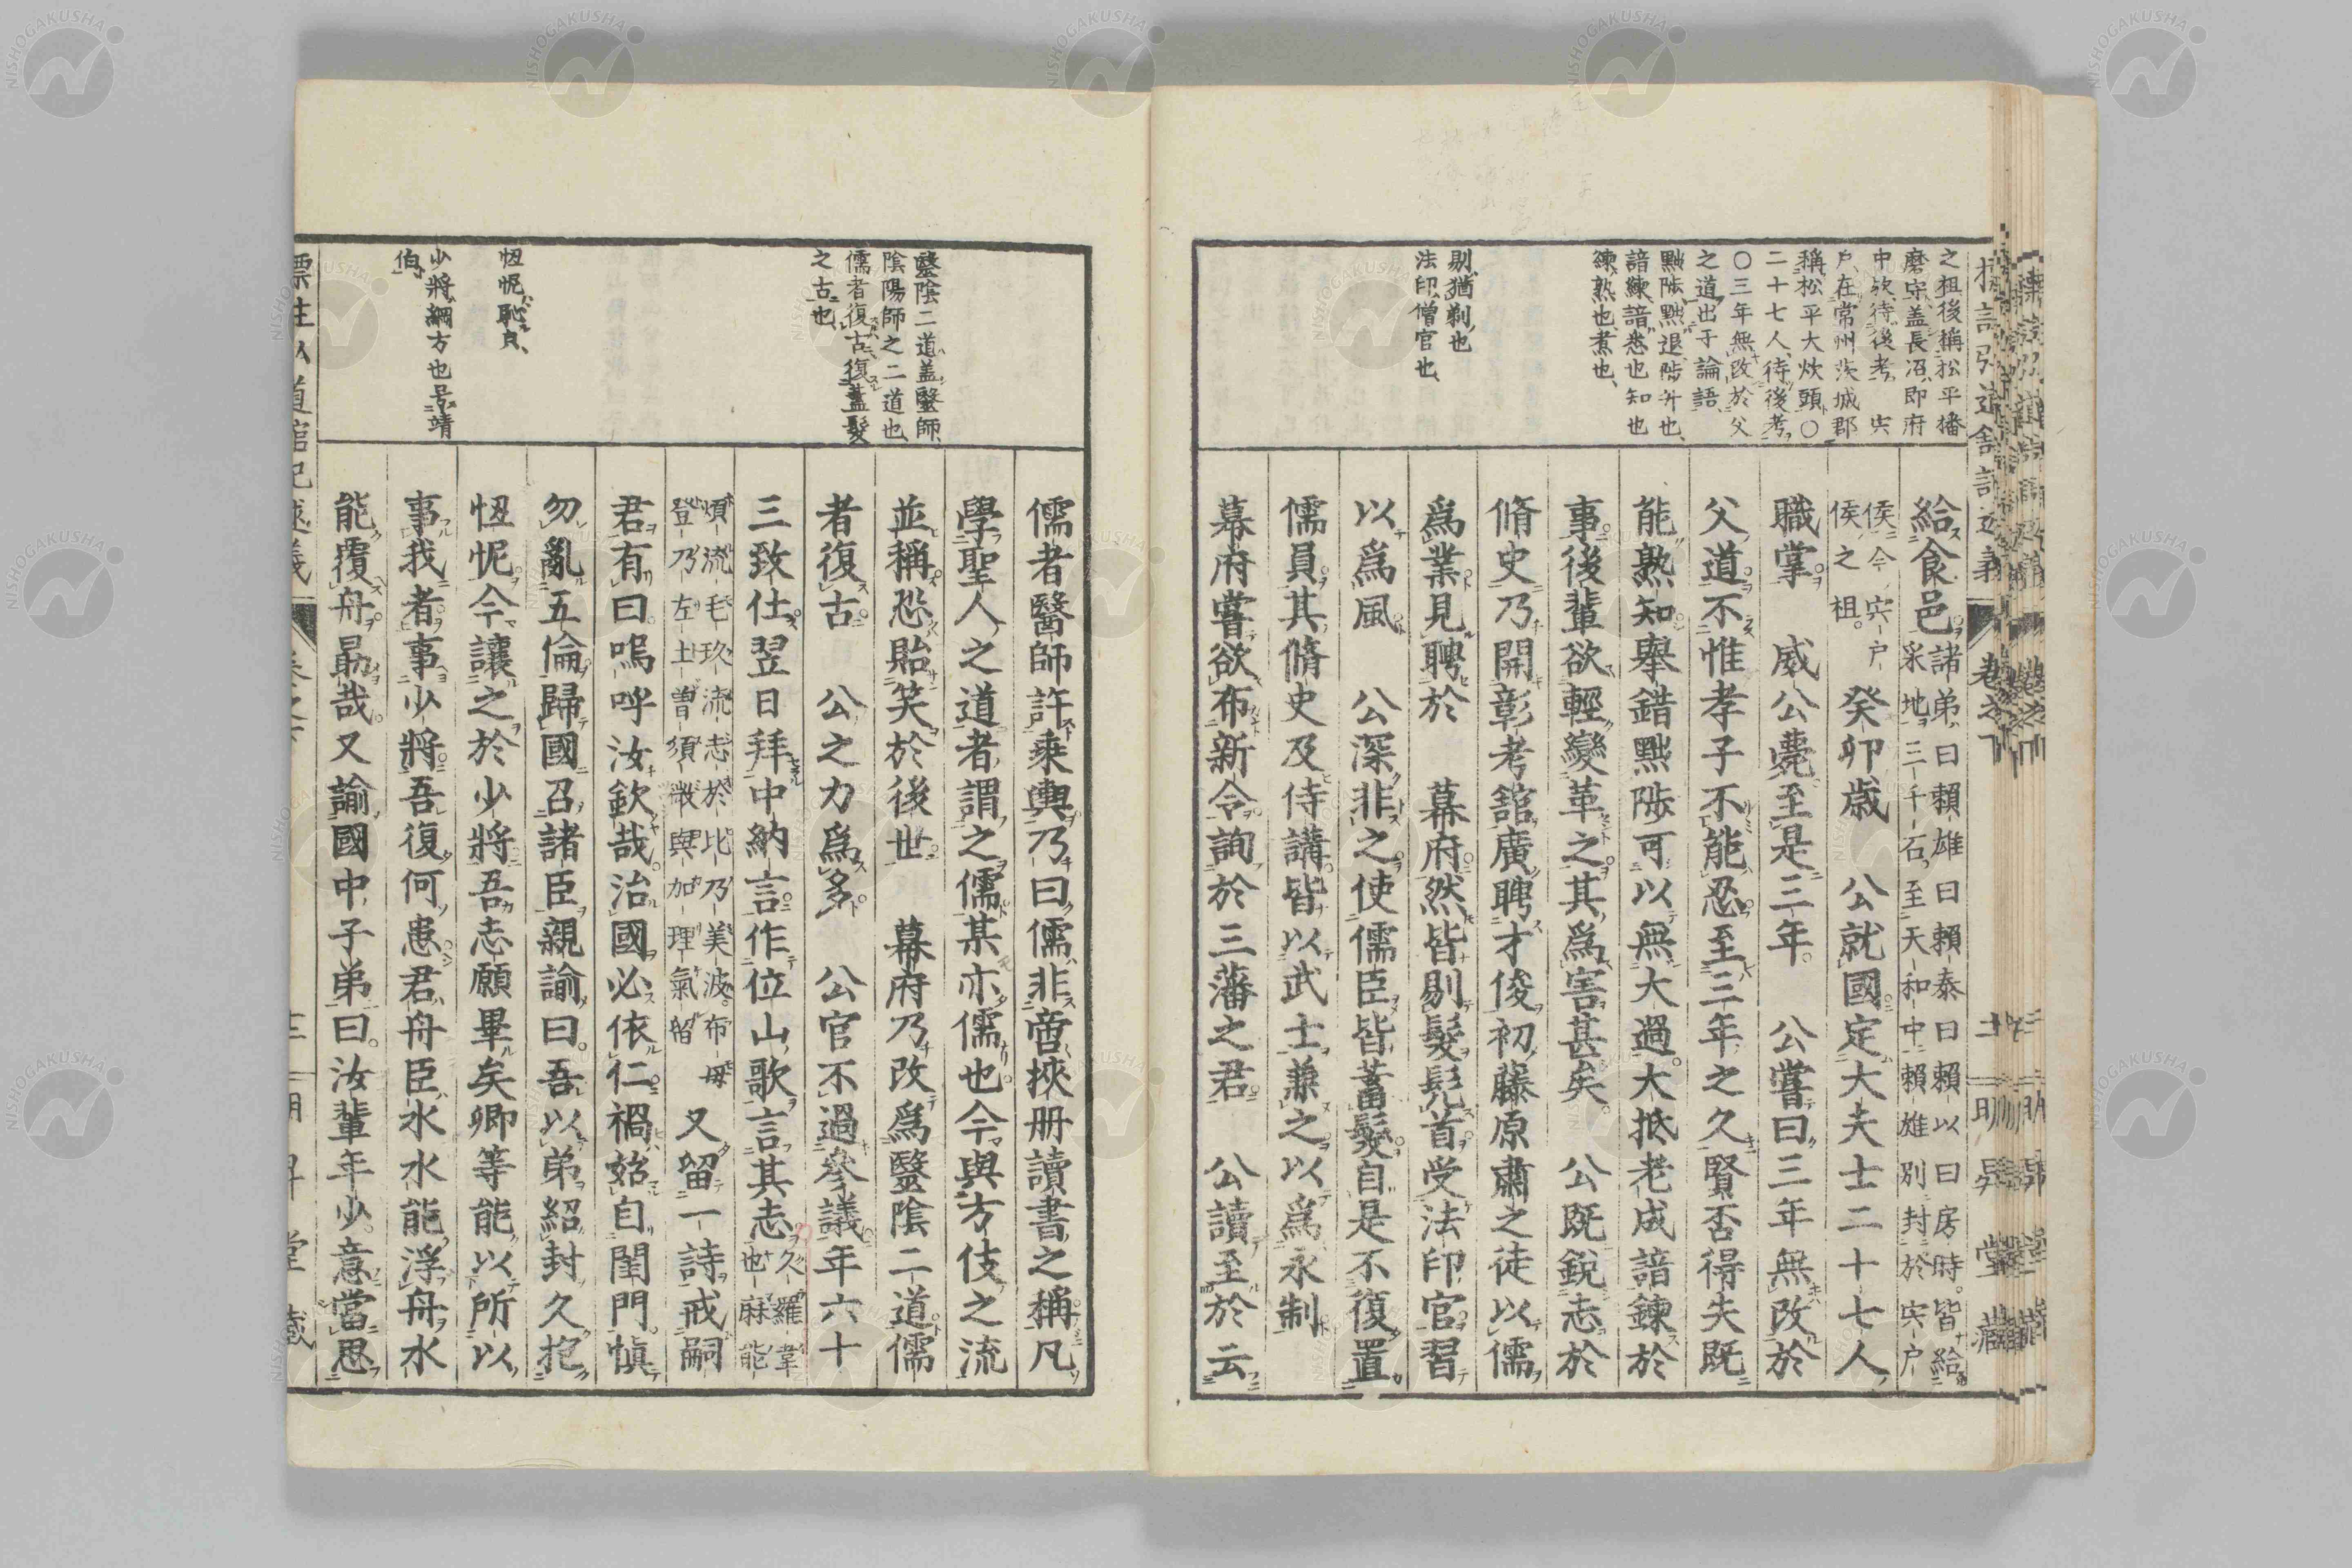 之祖後稱松平播
磨守盖長沼即府
中欤待後考 宍
戸在常州茨城郡
稱松平大炊頭○
二十七人待後考
○三年無改於父
之道出于論語
黜陟黜退陟升也
諳練諳悉也知也
練熟也煮也
剔猶剃也
法印僧官也
給食邑諸弟曰賴雄曰賴泰曰賴以曰房時皆給
采地三千石至天和中賴雄別封於宍戸
侯今宍戸
侯之祖 癸卯歳 公就國定大夫士二十七人
職掌 威公薨至是三年 公嘗曰三年無改於
父道不惟孝子不能忍至三年之久賢否得失既
能熟知舉錯黜陟可以無大過大抵老成諳鍊於
事後輩欲輕變革之其爲害甚矣 公既銳志於
脩史乃開彰考館廣聘才俊初藤原肅之徒以儒
爲業見聘於 幕府然皆剔髮髡首受法印官習
以爲風 公深非之使儒臣皆蓄髮自是不復置
儒員其脩史及侍講皆以武士兼之以爲永制
幕府嘗欲布新令詢於三藩之君 公讀至於云
醫陰二道盖醫師
陰陽師之二道也
儒者復古復蓋髮
之古也
忸怩恥皃
少將綱方也号靖
伯
儒者醫師許乘輿乃曰儒非啻挾册讀書之稱凡
學聖人之道者謂之儒某亦儒也今與方伎之流
並稱恐貽笑於後世 幕府乃改爲醫陰二道儒
者復古 公之力爲多 公官不過參議年六十
三致仕翌日拜中納言作位山歌言其志久羅韋
也麻能
煩流毛玖流志於比乃美波布毋
登乃左土曽須微與加理氣留 又留一詩戒嗣
君有曰嗚呼汝欽哉治國必依仁禍始自閨門愼
勿亂五倫歸國召諸臣親諭曰吾以弟紹封久抱
忸怩今讓之於少將吾志願畢矣卿等能以所以
事我者事少將吾復何患君舟臣水水能浮舟水
能覆舟勗哉又諭國中子弟曰汝輩年少意當思